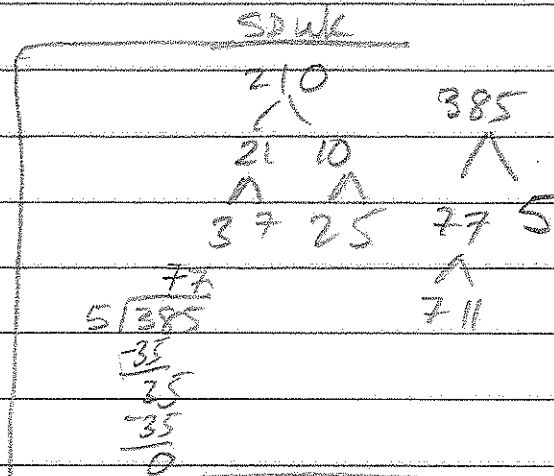 SDWK
210
385
21 10
3 7 2 5
77 5
7 11
77
5 385
-35
25
-35
0